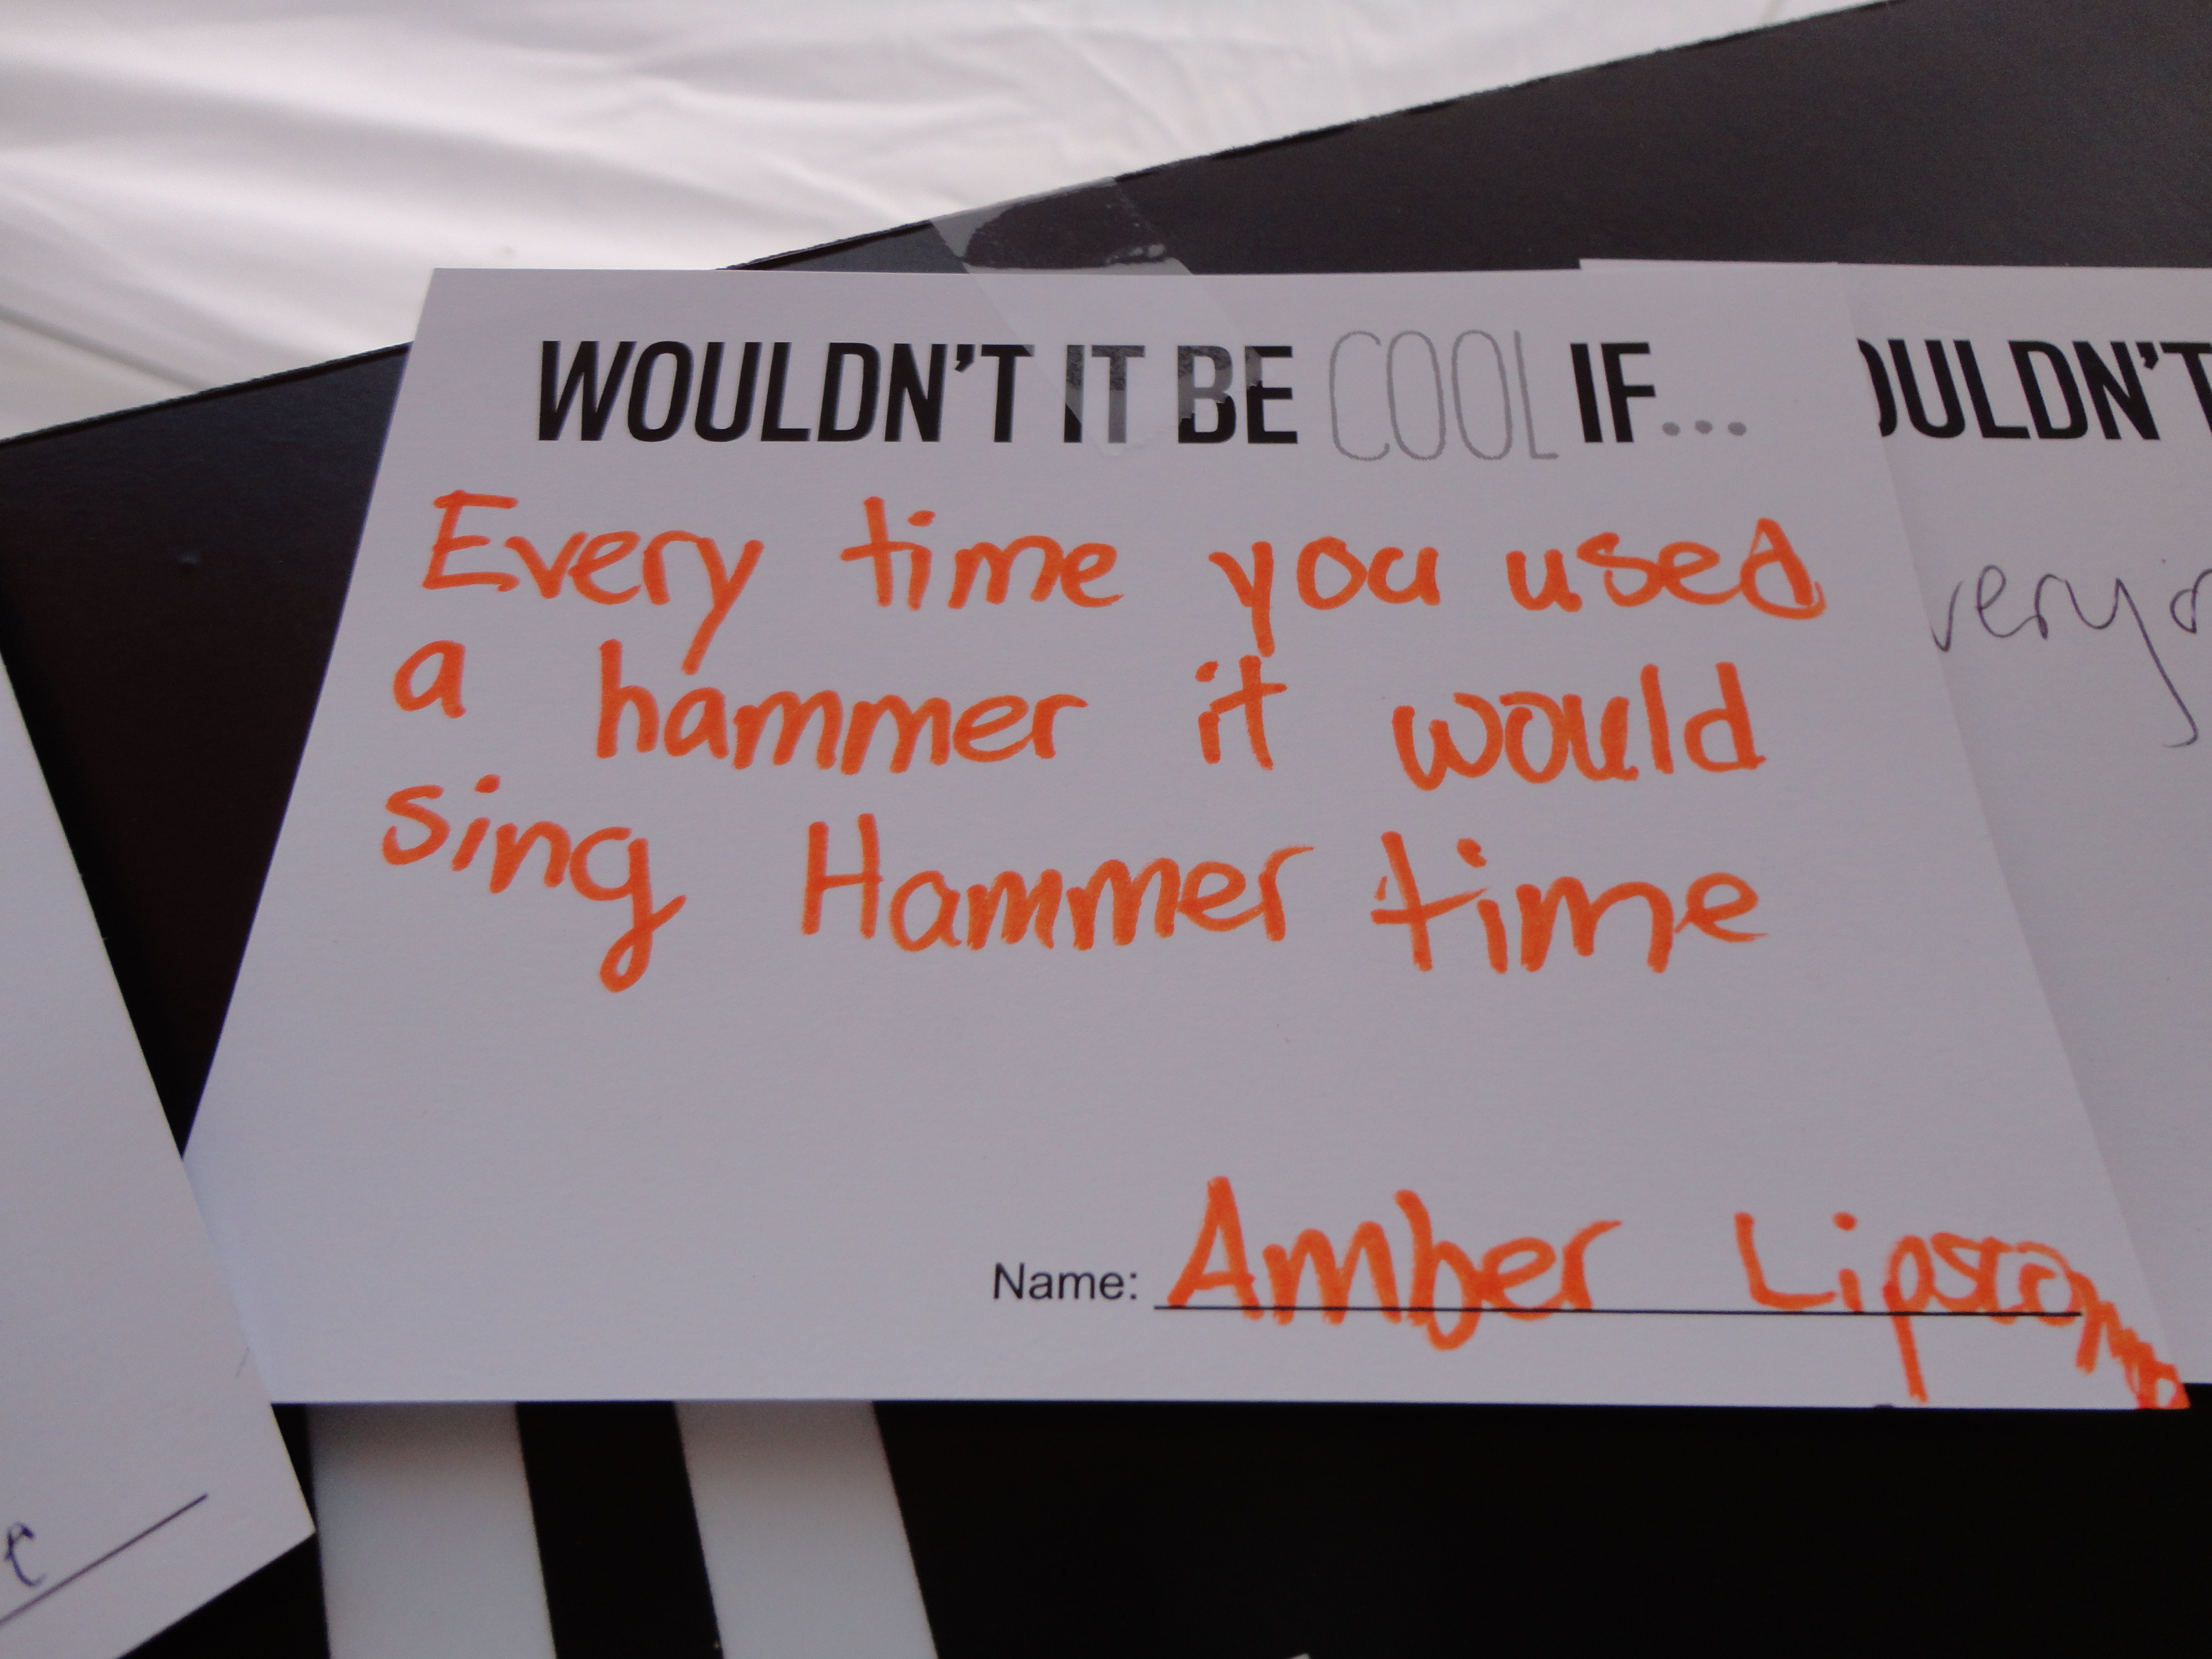 WOULDN'T IT BE COOL IF...
Every time you used
a hammer it would
sing Hammer time
Name: Amber
OULDN'T